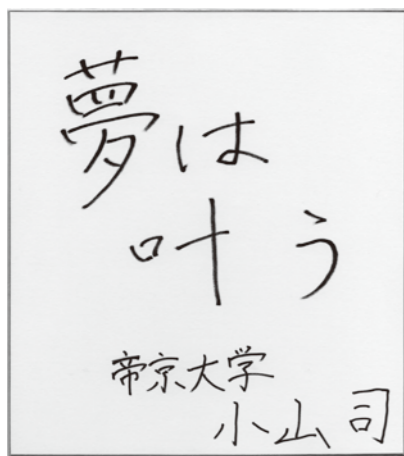 夢は
叶う
帝京大学
小山司